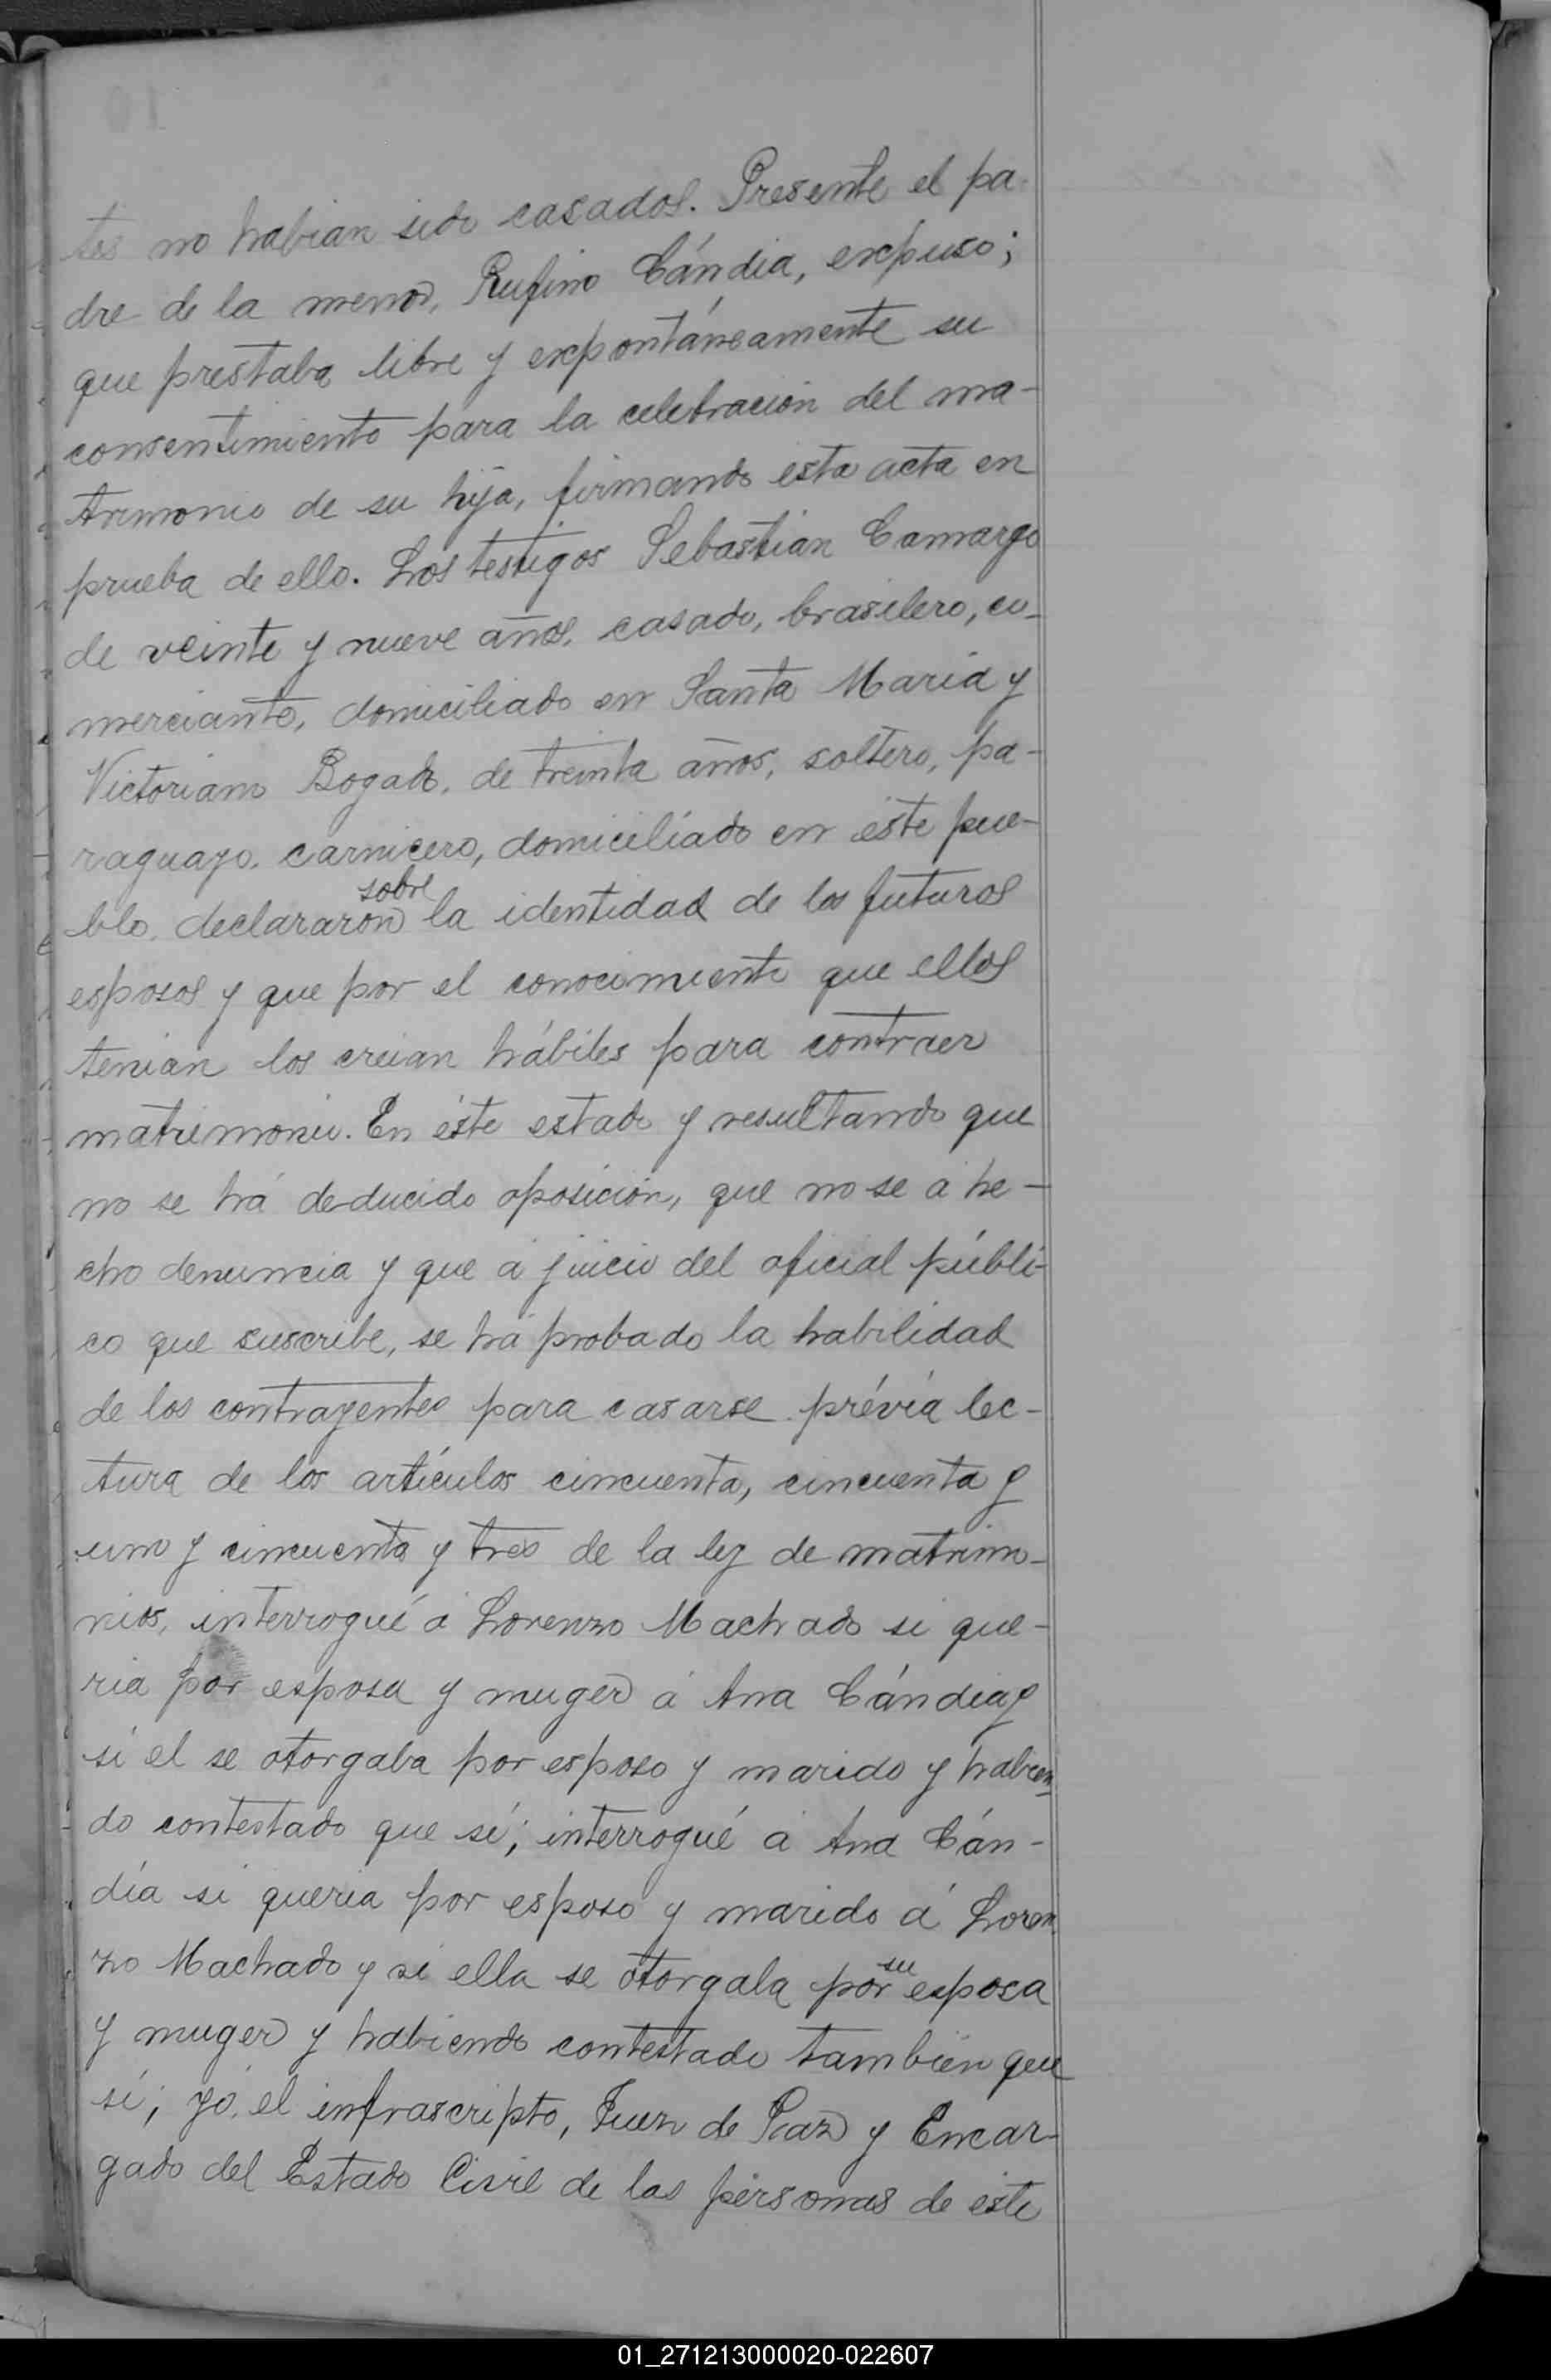 tes no habian sido casados. Presente el pa-
dre de la menor, Rufino Cándia, expuso;
que prestaba libre y expontáneamente su
consentimiento para la celebración del ma-
trimonio de su hija, firmando esta acta en
prueba de ello. Los testigos Sebastian Camargo
de veinte y nueve años, casado, brasilero, co-
merciante, domiciliado en Santa Maria y
Victoriano Bogado, de treinta años, soltero, pa-
raguayo, carnicero, domiciliado en éste pue-
blo, declararon sobre la identidad de los futuros
esposos y que por el conocimiento que ellos
tenian los creian hábiles para contraer
matrimonio. En éste estado y resultando que
no se há deducido oposición, que no se á he-
cho denuncia y que á juicio del oficial públi-
co que suscribe, se há probado la habilidad
de los contrayentes para casarse prévia lec-
tura de los artículos cincuenta, cincuenta y
uno y cincuenta y tres de la ley de matrimo-
nios, interrogué á Lorenzo Machado si que-
ria por esposa y muger á Ana Cándia y
si el se otorgaba por esposo y marido y habien-
do contestado que sí; interrogué á Ana Cán-
día si queria por esposo y marido á Loren
zo Machado y si ella se otorgaba por su esposa
y muger y habiendo contestado tambien que
sí; yo, el infrascripto, Juez de Paz y Encar-
gado del Estado Civil de las personas de éste
01_271213000020-022607